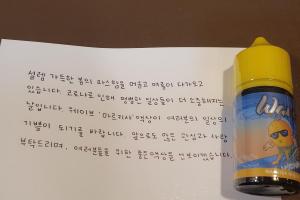 설렘 가득한 봄의 따스함을 머금고 여름이 다가오고
있습니다. 코로나로 인해 평범한 일상들이 더 소중해지는
날입니다. 웨이브 '마르키사' 액상이 여러분의 일상의
기쁨이 되기를 바랍니다. 앞으로도 많은 관심과 사랑
부탁드리며, 여러분들을 위한 좋은액상을 선보이겠습니다.